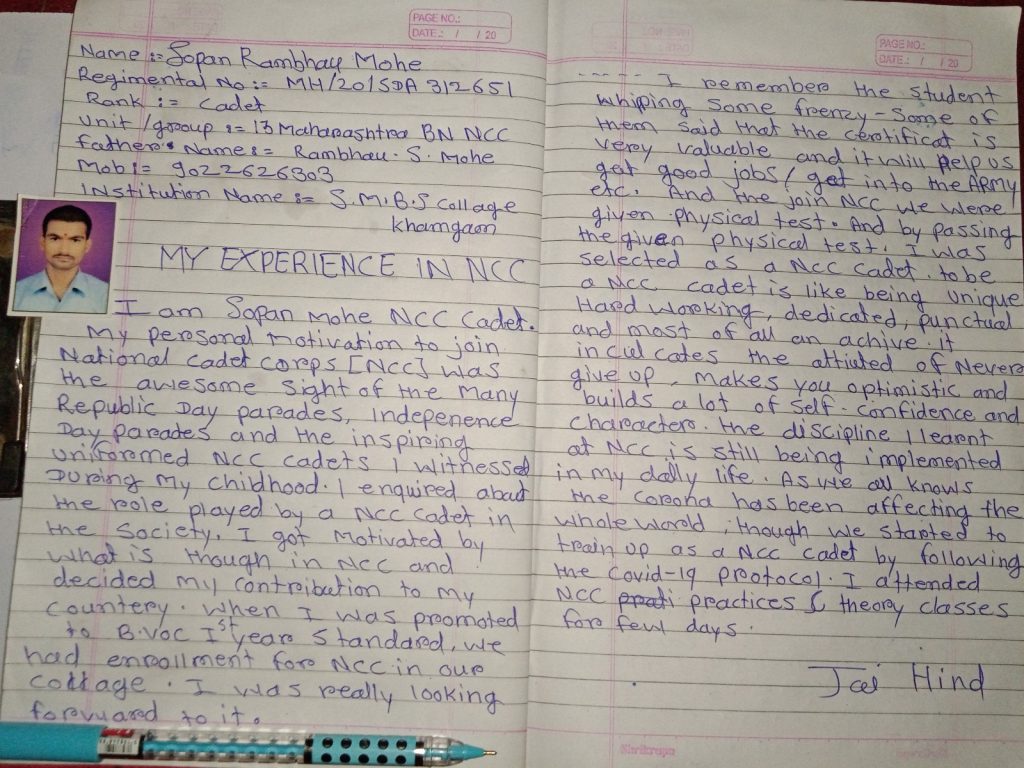 PAGE NO.:
DATE: / /20
Name :- Sopan Rambhau Mohe
Regimental No :- MH/20/SDA 312651
Rank := Cadet
Unit /group := 13 Maharashtra BN NCC
father's Name := Rambhau. S. Mohe
Mob := 9022626303
Institution Name := S.M.B.S collage
khamgaon
MY EXPERIENCE IN NCC
I am Sopan Mohe NCC Cadet.
My personal motivation to join
National Cadet Corps [NCC] was
the awesome sight of the many
Republic Day parades, Indepenence
Day parades and the inspiring
uniformed NCC cadets I witnessed
During my chidhood. I enquired about
the role played by a NCC cadet in
the Society. I got motivated by
what is though in NCC and
decided my contribution to my
countery. when I was promoted
to B.voc Ist year standard, we
had enrollment for NCC in our
collage. I was really looking
forvuard to it.
PAGE NO.:
DATE: / /20
----- I remember the student
whiping some frenzy - Some of
them said that the certificat is
very valuable and it will pelp us
get good jobs / get into the ARMY
etc. And the join NCC we were
given physical test. And by passing
the given physical test. I was
selected as a NCC cadet. to be
a NCC cadet is like being unique
Hard working, dedicated, punctual
and most of all an achive. it
inculcates the attiuted of Never
give up, makes you optimistic and
builds a lot of self-confidence and
character. the discipline I learnt
at NCC is still being implemented
in my dally life. As we all knows
the corona has been affecting the
whole world, though we started to
train up as a NCC cadet by following
the covid-19 protocol. I attended
NCC practices & theory classes
for few days.
Jai Hind
Shrikrupa